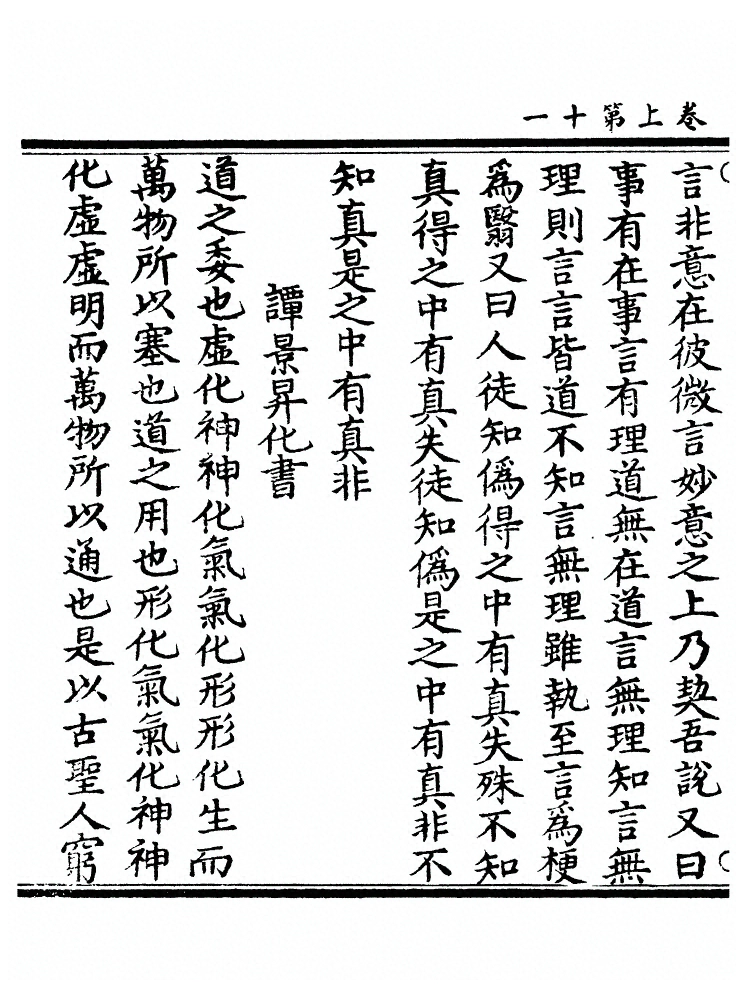 卷上第十一
言非意在彼微言妙意之上乃契吾說又曰
事有在事言有理道無在道言無理知言無
理則言言皆道不知言無理雖執至言爲梗
爲翳又曰人徒知僞得之中有真失殊不知
真得之中有真失徒知僞是之中有真非不
知真是之中有真非
譚景昇化書
道之委也虛化神神化氣氣化形形化生而
萬物所以塞也道之用也形化氣氣化神神
化虛虛明而萬物所以通也是以古聖人窮